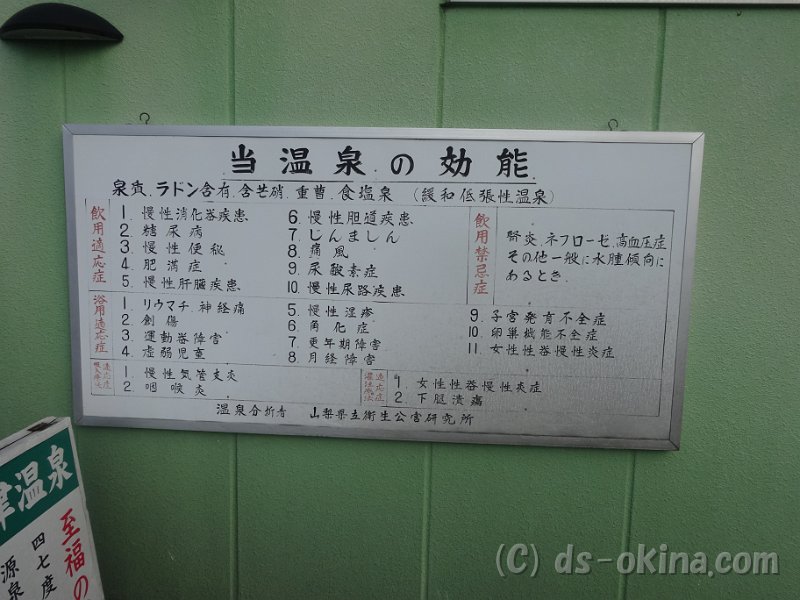 当温泉の効能
泉質.ラドン含有.含芒硝.重曹.食塩泉 (緩和低張性温泉)
飲用適応症
1. 慢性消化器疾患
2 糖尿病
3 慢性便秘
4 肥満症
5 慢性肝臓疾患
6. 慢性胆道疾患
7. じんましん
8 痛風
9 尿酸素症
10. 慢性尿路疾患
飲用禁忌症
腎炎.ネフローゼ.高血圧症
その他一般に水腫傾向に
あるとき.
浴用適応症
1 リウマチ.神経痛
2 創傷
3 運動器障害
4 虚弱児童
5. 慢性湿疹
6 角化症
7 更年期障害
8 月経障害
9. 子宮発育不全症
10. 卵巣機能不全症
11. 女性性器慢性炎症
適応症
1. 慢性気管支炎
2 咽喉炎
適応症
1. 女性性器慢性炎症
2. 下腿潰瘍
温泉分析者 山梨県立衛生公害研究所
津温泉
至福の
四七度
源泉
(C) ds-okina.com